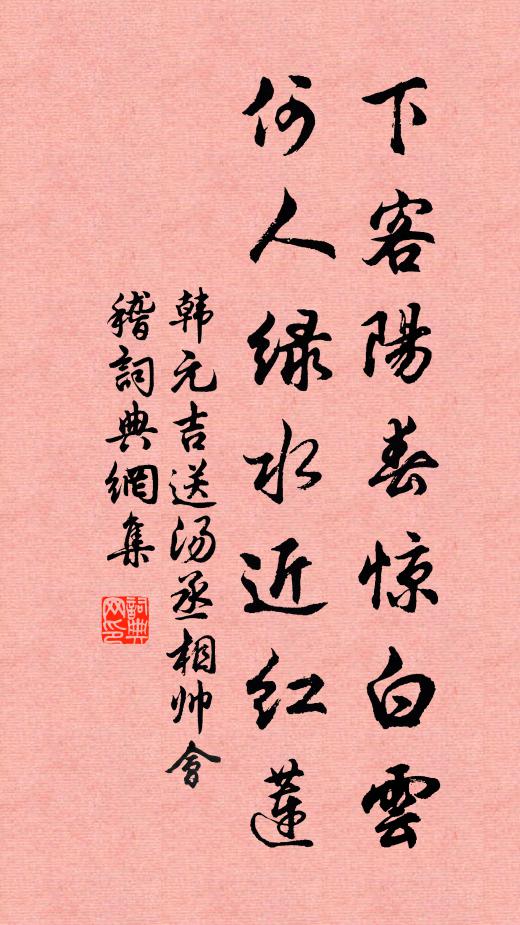 下客陽春惊白雲
何人緑水近红蓮
韩元吉送汤丞相帅會
稽詞典網集
詞典网印